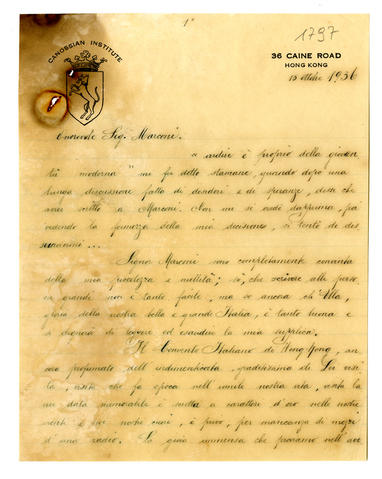 1°
1797
CANOSSIAN INSTITUTE
36 CAINE ROAD
HONG KONG
13 ottobre 1936
Onorevole Sig. Marconi.
" ardire è proprio della gioven
tù moderna " mi fu detto stamane, quando dopo una
lunga discussione fatta di desideri e di speranze, dissi che
avrei scritto a Marconi. Non mi si crede dapprima, poi
vedendo la fermezza della mia decisione, si tentò di dis
suadermi ...
Signor Marconi sono completamente convinta
della mia piccolezza e nullità; so, che scrivere alle perso
ne grandi non è tanto facile, ma so ancora che Ella,
gloria della nostra bella e grande Italia, è tanto buona e
si degnerà di leggere ed esaudire la mia supplica.
Il Convento Italiano di Hong Kong, an
cora profumato dell'indimenticata, graditissima di Lei visi
ta, visita che fa epoca nell'umile nostra vita, visita la
cui data memorabile è scritta a caratteri d'oro nelle nostre
menti e nei nostri cuori, è privo, per mancanza di mezzi
d'una radio. La gioia immensa che proviamo nell'